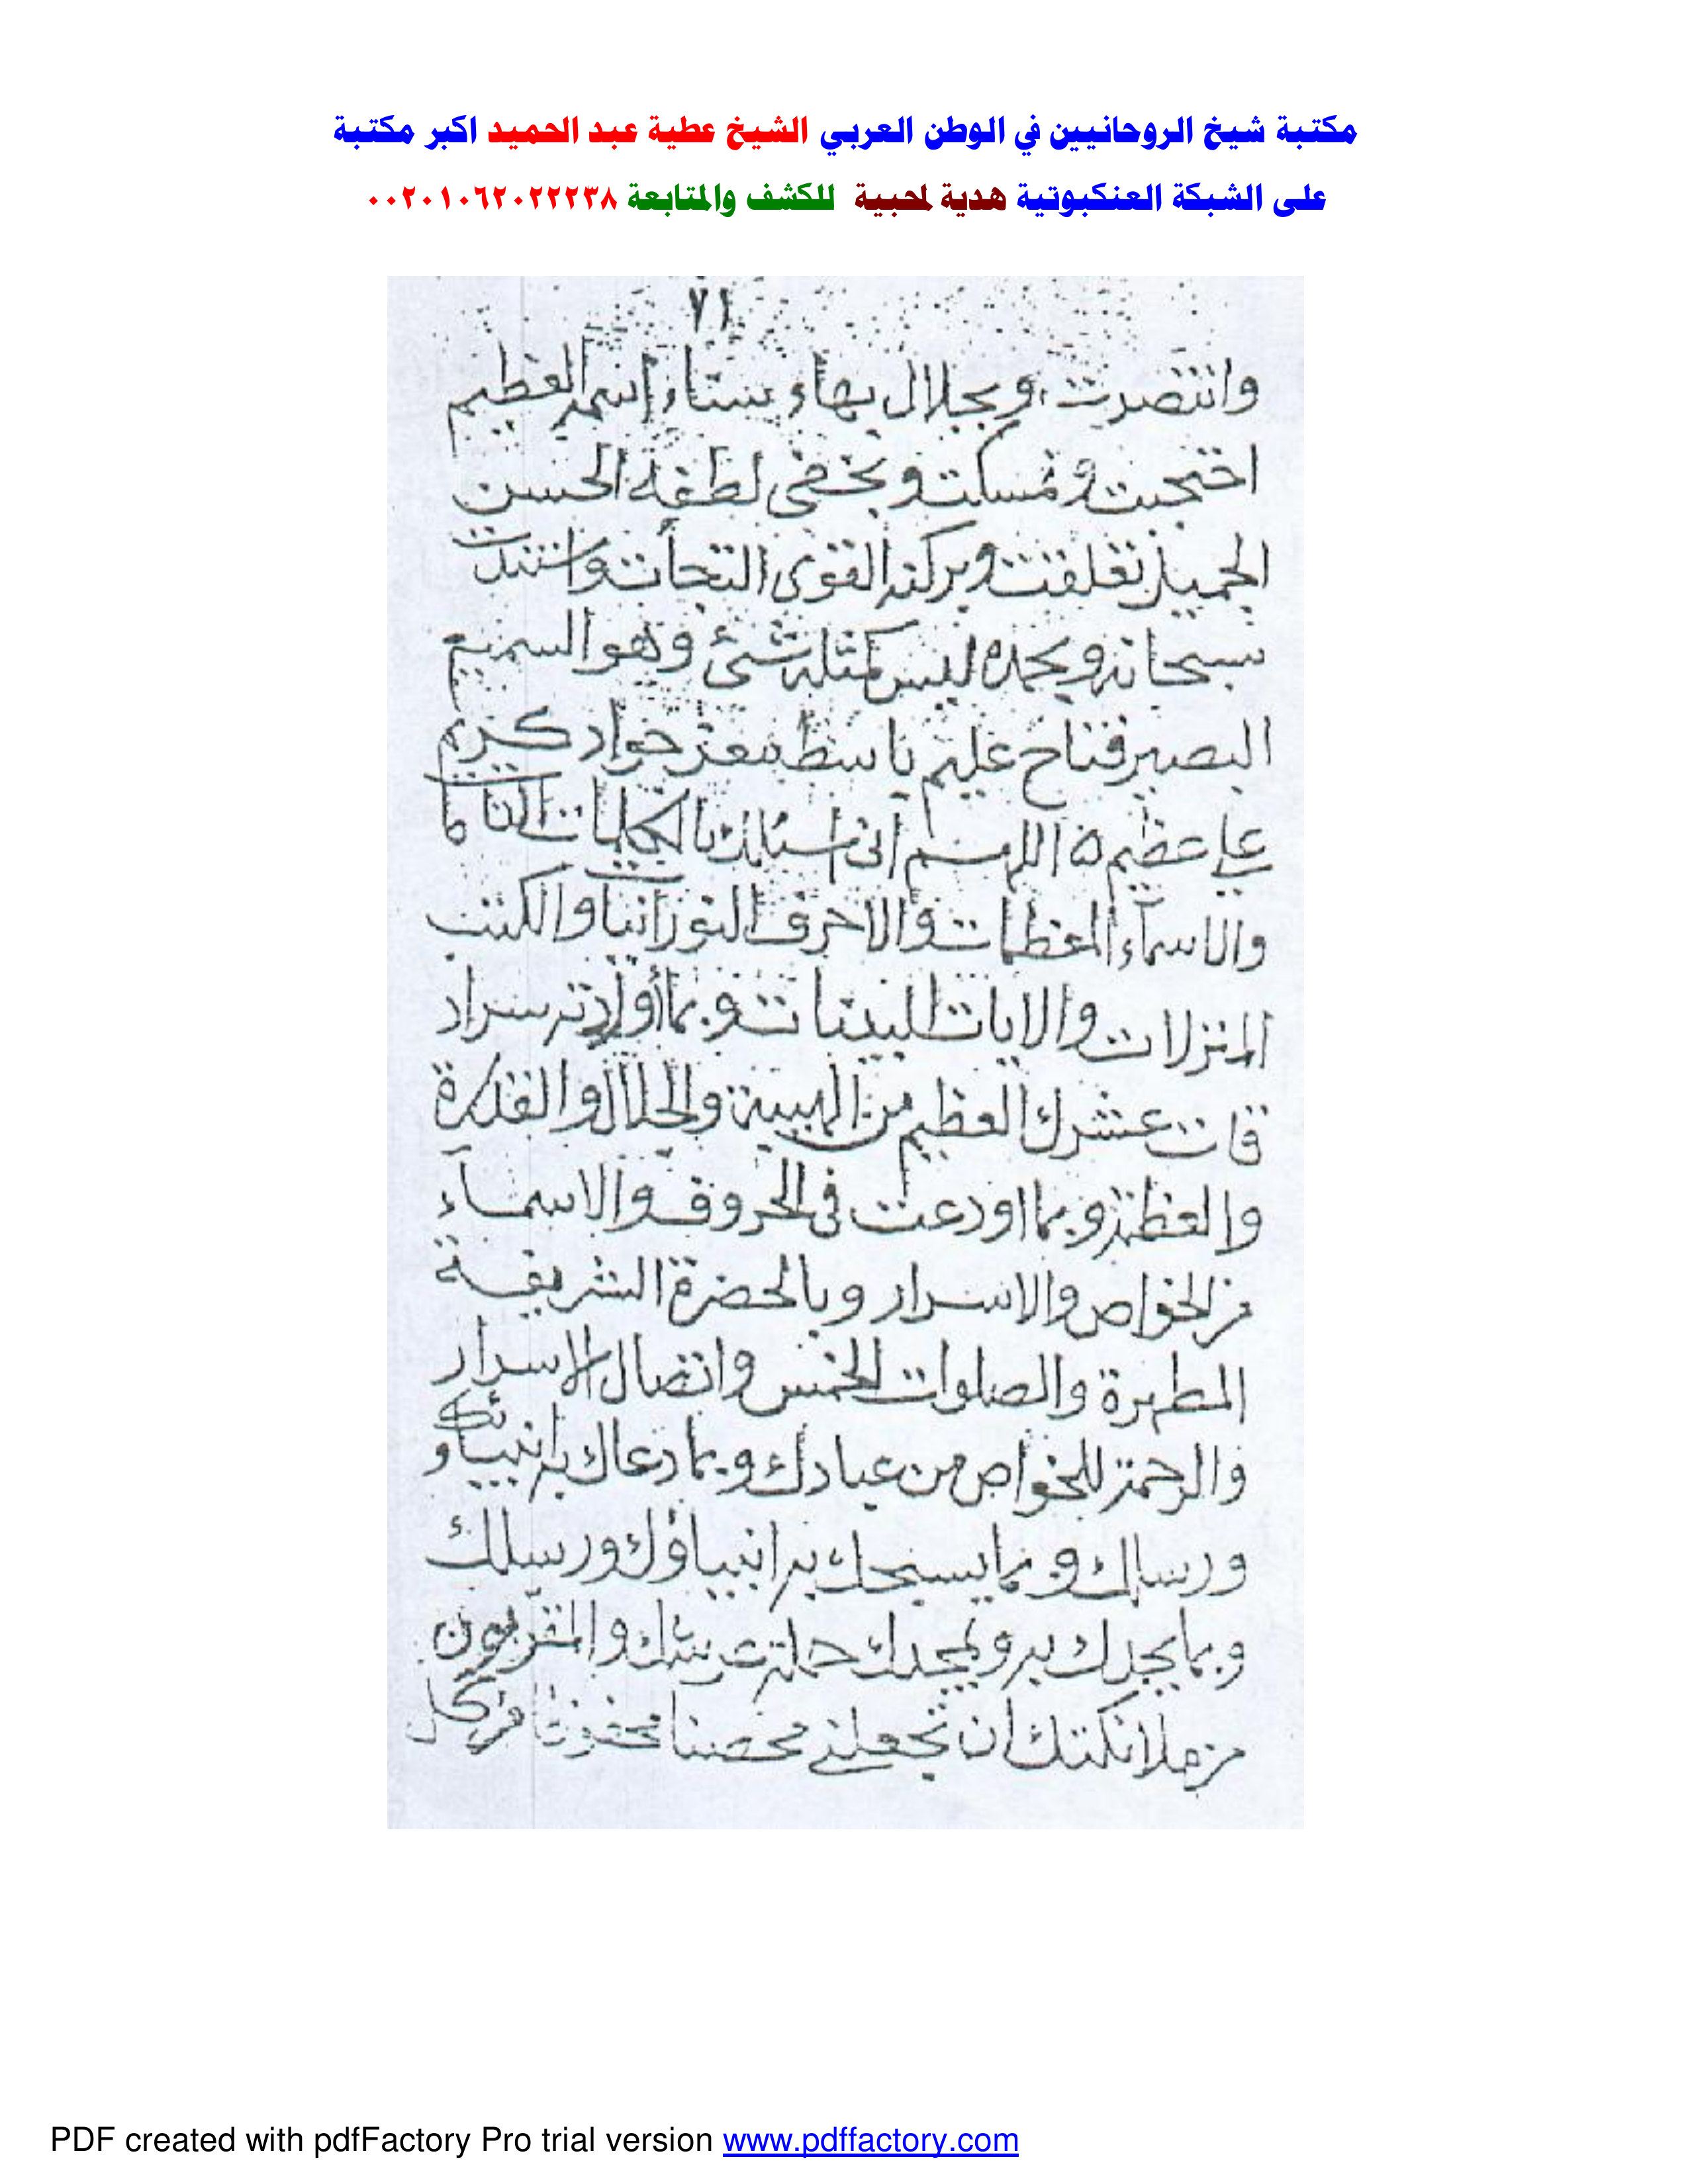 مكتبة شيخ الروحانيين في الوطن العربي الشيخ عطية عبد الحميد اكبر مكتبة
على الشبكة العنكبوتية هدية لمحبية للكشف والمتابعة ٠٠٢٠١٠٦٢٠٢٢٢٣٨
٧١
وانتصرت وبجلال بهاء سناء إسمه العظيم
احتجبت وتمسكت وبخفى لطفه الحسن
الجميل تعلقت وبركنه القوى التجأت واستندت
سبحانه وبحمده ليس كمثله شئ وهو السميع
البصير فتاح عليم باسط معز جواد كريم
على عظيم ه اللهم انى اسئلك بالكلمات التاما
والاسماء المعظمات والاحرف النورانيا والكتب
المنزلات والايات البينات وبما سراد
قات عشرك العظيم من الهيبة والجلال والقدرة
والعظمة وبما اودعت فى الحروف والاسماء
من الخواص والاسرار وبالحضرة الشريفة
المطهرة والصلوات الخمس واتصال الاسرار
والرحمة للخواص من عبادك وبما دعاك به انبياؤك
ورسلك وبما يسبحك به انبياؤك ورسلك
وبما يمجدك به ويمجدك حملة عرشك والمقربون
من ملائكتك ان تجعلنى محصنا من كل
PDF created with pdfFactory Pro trial version www.pdffactory.com